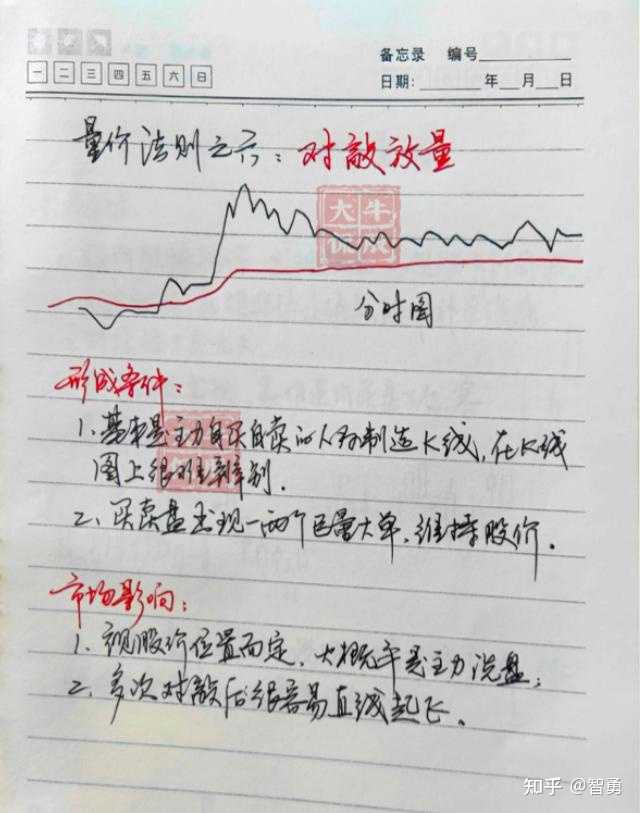 备忘录 编号
一 二 三 四 五 六 日
日期: 年 月 日
量价法则之六：对敲放量
大牛
分时图
形成条件：
1、基本是主力自买自卖的人为制造K线，在K线
图上很难辨别.
2、买卖盘出现一两个巨量大单，维持股价.
市场影响：
1、视股价位置而定，大概率是主力洗盘；
2、多次对敲后很容易直线起飞.
知乎 @智勇